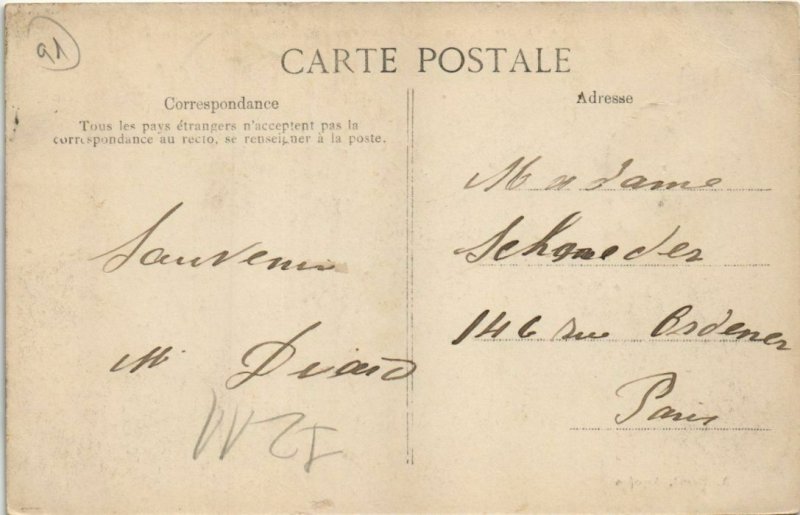 91
CARTE POSTALE
Correspondance
Tous les pays étrangers n'acceptent pas la
correspondance au recto, se renseigner à la poste.
Souvenir
M.
Adresse
Madame
Schneder
146 rue Ordener
Paris